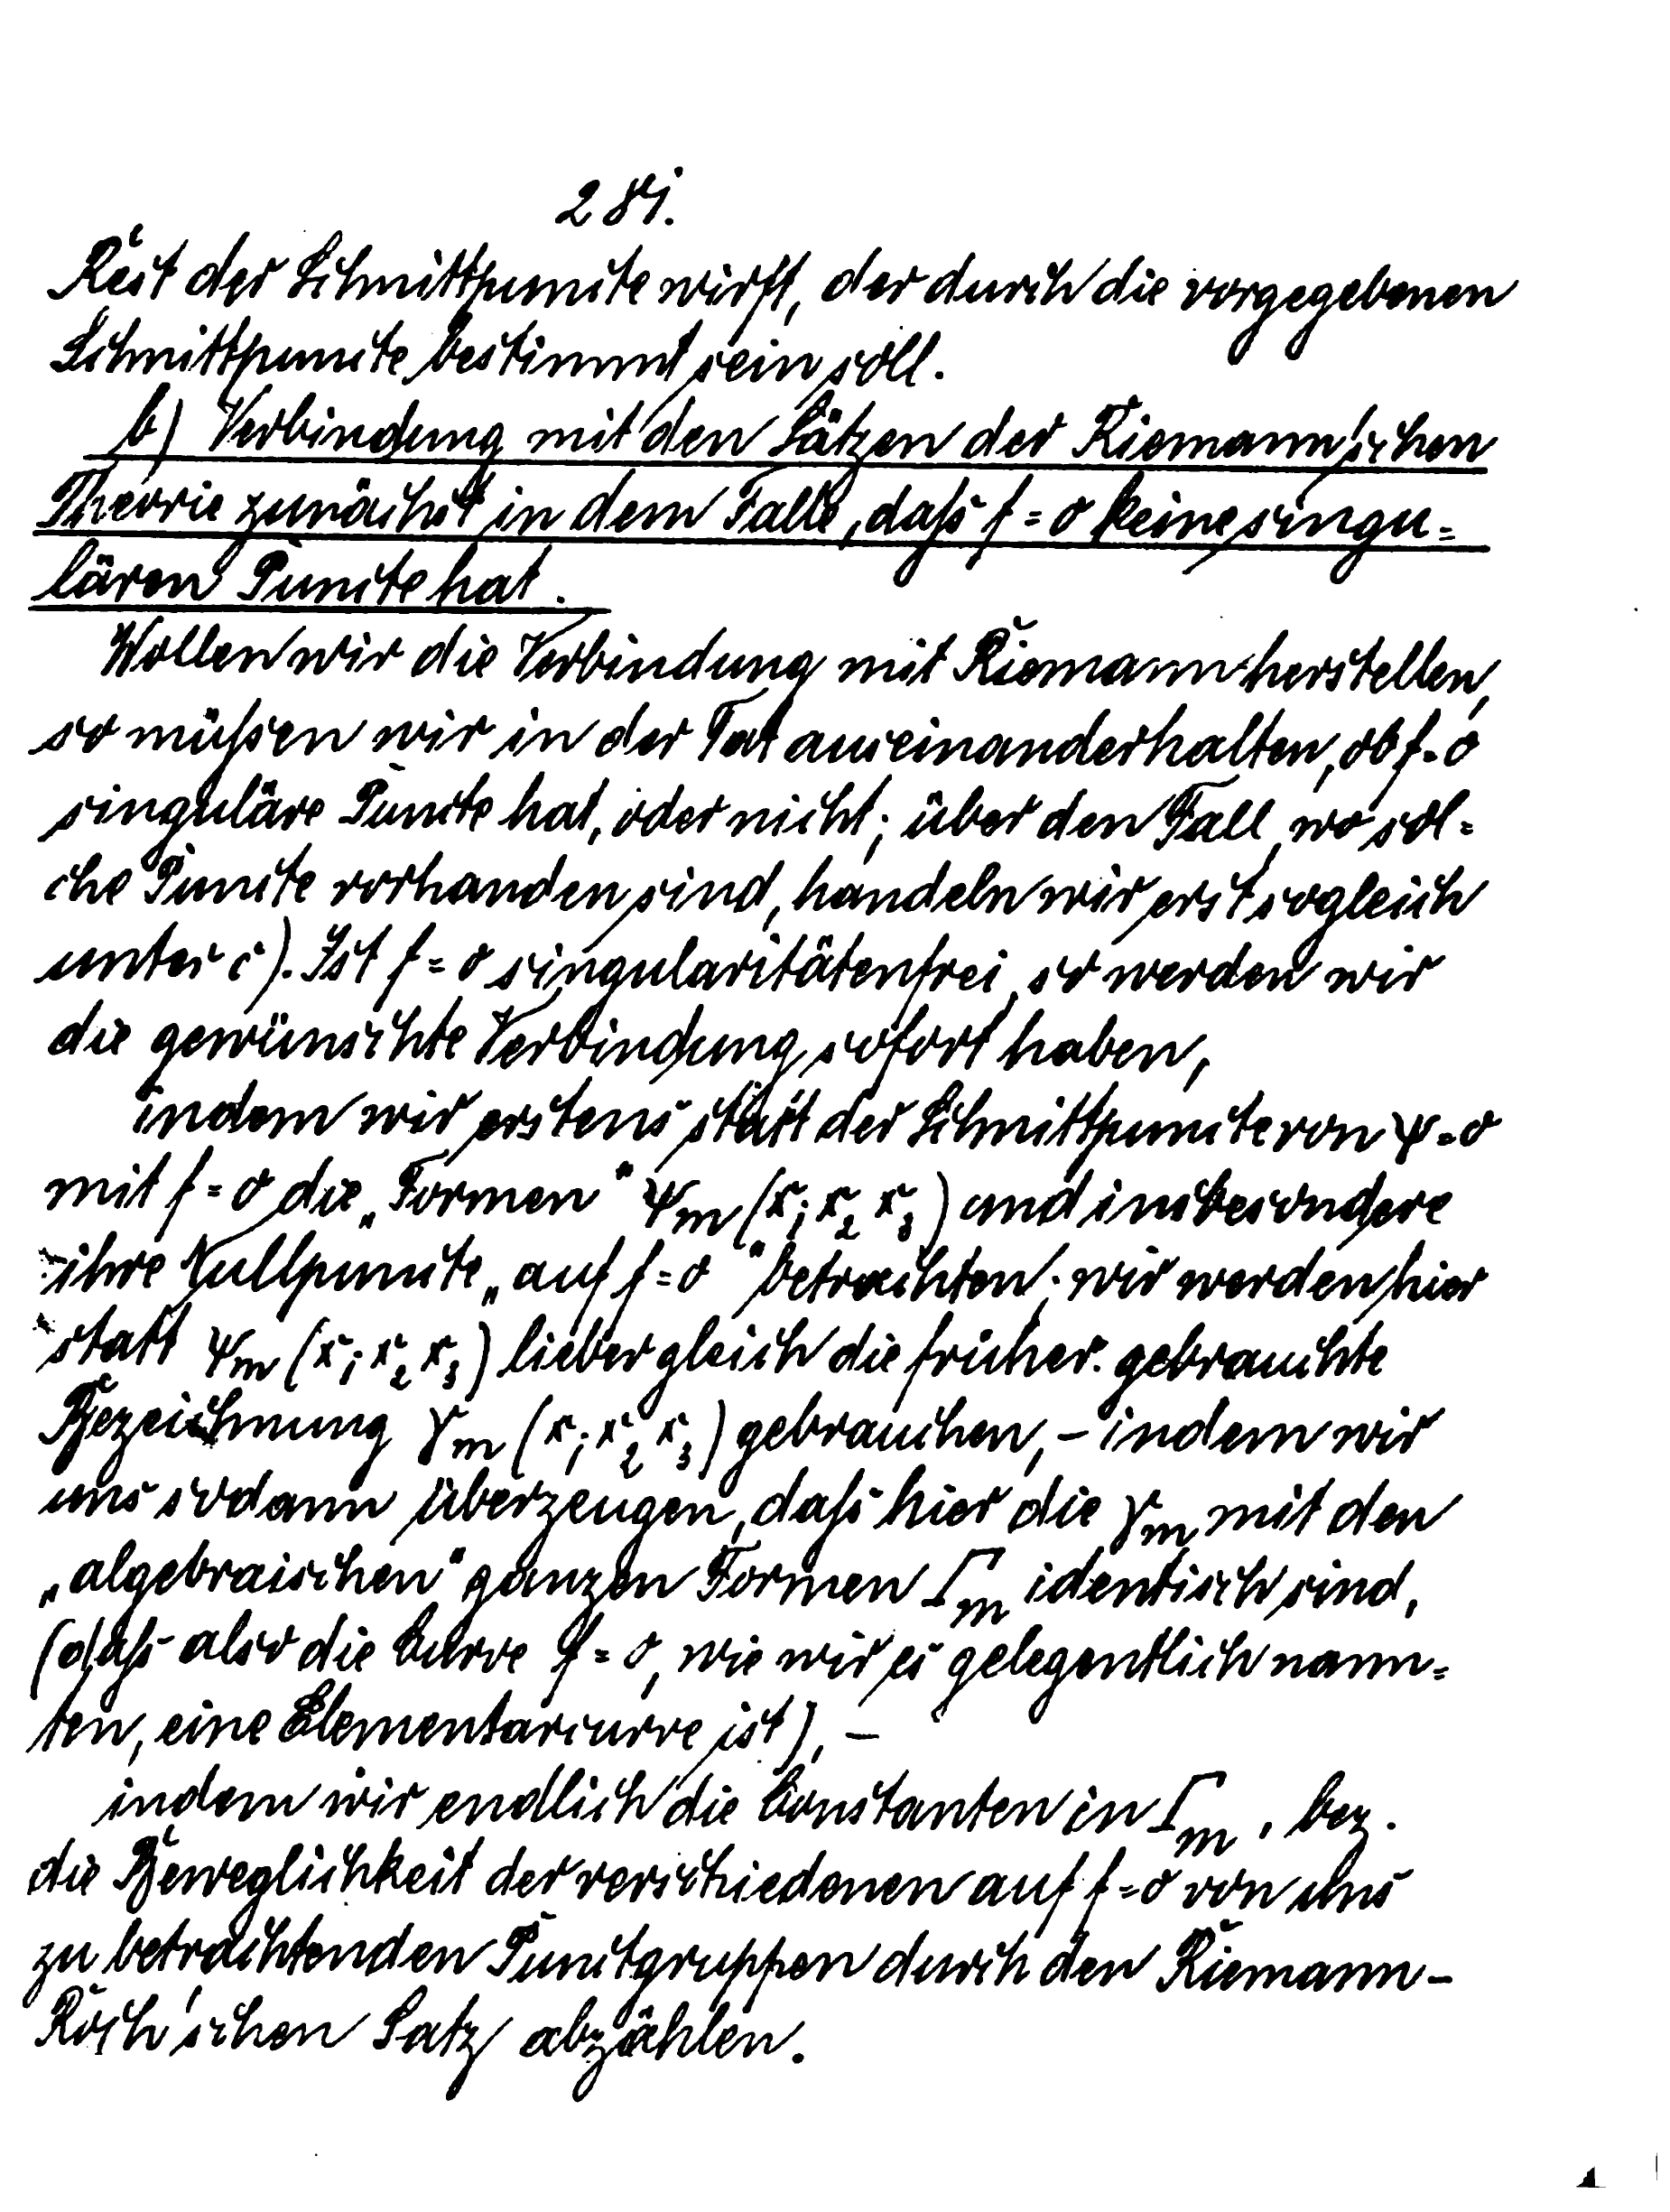 281.
Rest der Schnittpuncte wirft, der durch die vorgegebenen
Schnittpuncte bestimmt sein soll.
b) Verbindung mit den Sätzen der Riemann'schen
Theorie zunächst in dem Falle, daß f = 0 keine singu=
lären Puncte hat.
Wollen wir die Verbindung mit Riemann herstellen,
so müßsen wir in der Tat auseinanderhalten, ob f = 0
singuläre Puncte hat, oder nicht; über den Fall, wo sol=
che Puncte vorhanden sind, handeln wir erst sogleich
unter c). Ist f = 0 singularitätenfrei, so werden wir
die gewünschte Verbindung sofort haben,
indem wir erstens statt der Schnittpuncte von ψ = 0
mit f = 0 die „Formen“ ψ_m (x_1 x_2 x_3) und insbesondere
ihre Nullpuncte „auf f = 0“ betrachten; wir werden hier
statt ψ_m (x_1 x_2 x_3) lieber gleich die früher gebrauchte
Bezeichnung γ_m (x_1 x_2 x_3) gebrauchen, – indem wir
uns sodann überzeugen, daß hier die γ_m mit den
„algebraischen“ ganzen Formen Γ_m identisch sind,
(daß also die Curve f = 0, wie wir es gelegentlich nann=
ten, eine Elementarcurve ist), –
indem wir endlich die Constanten in Γ_m, bez.
die Beweglichkeit der verschiedenen auf f = 0 von uns
zu betrachtenden Punctgruppen durch den Riemann-
Roch'schen Satz abzählen.